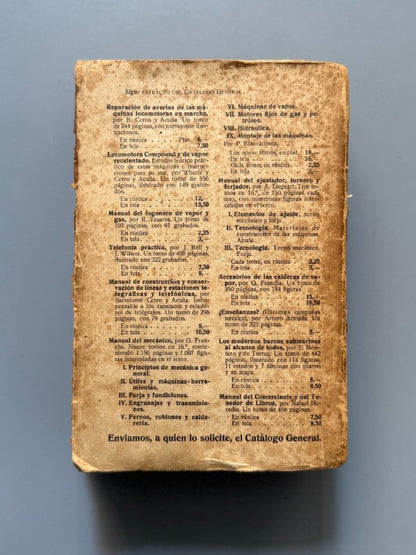 Sigue EXTRACTO DEL CATÁLOGO GENERAL
Reparación de averías de las má-
quinas locomotoras en marcha,
por B. Cerro y Acuña. Un tomo
de 244 páginas, con numerosas ilus-
traciones.
En rústica Ptas. 6,
En tela 7,50
Locomotora Compound y de vapor
recalentado. Estudio teórico práctico
de estas máquinas e instrucciones
para su uso, por
Cerro y Acuña. Un tomo de 550
páginas, ilustrado con 149 graba-
dos.
En rústica 12,—
En tela 13,50
Manual del fogonero de vapor y
gas, por R. Yesares. Un tomo de
103 páginas, con 91 grabados.
En rústica 2,25
En tela 3,—
Telefonía práctica, por J. Bell y
J. Wilson. Un tomo de 408 páginas,
ilustrado con 322 grabados.
En rústica 7,50
En tela 9,—
Manual de construcción y conser-
vación de líneas y estaciones te-
legráficas y telefónicas, por
Bartolomé Cerro y Acuña. Indis-
pensable a los capataces y celado-
res de telégrafos. Un tomo de 296
páginas, con 79 grabados.
En rústica 9,—
En tela 10,50
Manual del mecánico, por G. Fran-
che. Nueve tomos en 16.º, conte-
niendo 1.156 páginas y 1.007 figu-
ras intercaladas en el texto.
I. Principios de mecánica ge-
neral.
II. Útiles y máquinas-herra-
mientas.
III. Forja y fundiciones.
IV. Engranajes y transmisio-
nes.
V. Pernos, roblones y calde-
rería.
VI. Máquinas de vapor.
VII. Motores fijos de gas y pe-
tróleo.
VIII. Hidráulica.
IX. Montaje de las máquinas.
Por P. Blancarnoux.
Los nueve tomos, en rúst. 19,—
En tela
Cada tomo, en rústica 2,25
En tela 3,—
Manual del ajustador, tornero y
forjador, por A. Tres to-
mos en 16.º, de 150 páginas cada
uno, con numerosas figuras inter-
caladas en el texto.
I. Elementos de ajuste, torno
mecánico y forja.
II. Tecnología. Materiales de
construcción de las máquinas.
Ajuste.
III. Tecnología. Torno mecánico.
Forja.
Cada tomo, en rústica 2,25
En tela 3,—
Accesorios de las calderas de va-
por, por G. Franche. Un tomo de
350 páginas, con 184 figuras
En rústica 15,—
En tela 16,50
¿Enseñanza? (Últimas campañas
navales), por Arturo Armada. Un
tomo de 221 páginas.
En rústica 5,—
Los modernos barcos submarinos
al alcance de todos, por E. Mon-
tero y de Torres. Un tomo de 442
páginas, ilustrado con 114 figuras,
11 estados y 7 láminas con planos
y un mapa.
En rústica 8,—
En tela 9,50
Manual del Comerciante y del Te-
nedor de Libros, por Rafael He-
redia. Un tomo de 450 páginas.
En rústica 7,50
En tela 9,50
Enviamos, a quien lo solicite, el Catálogo General.